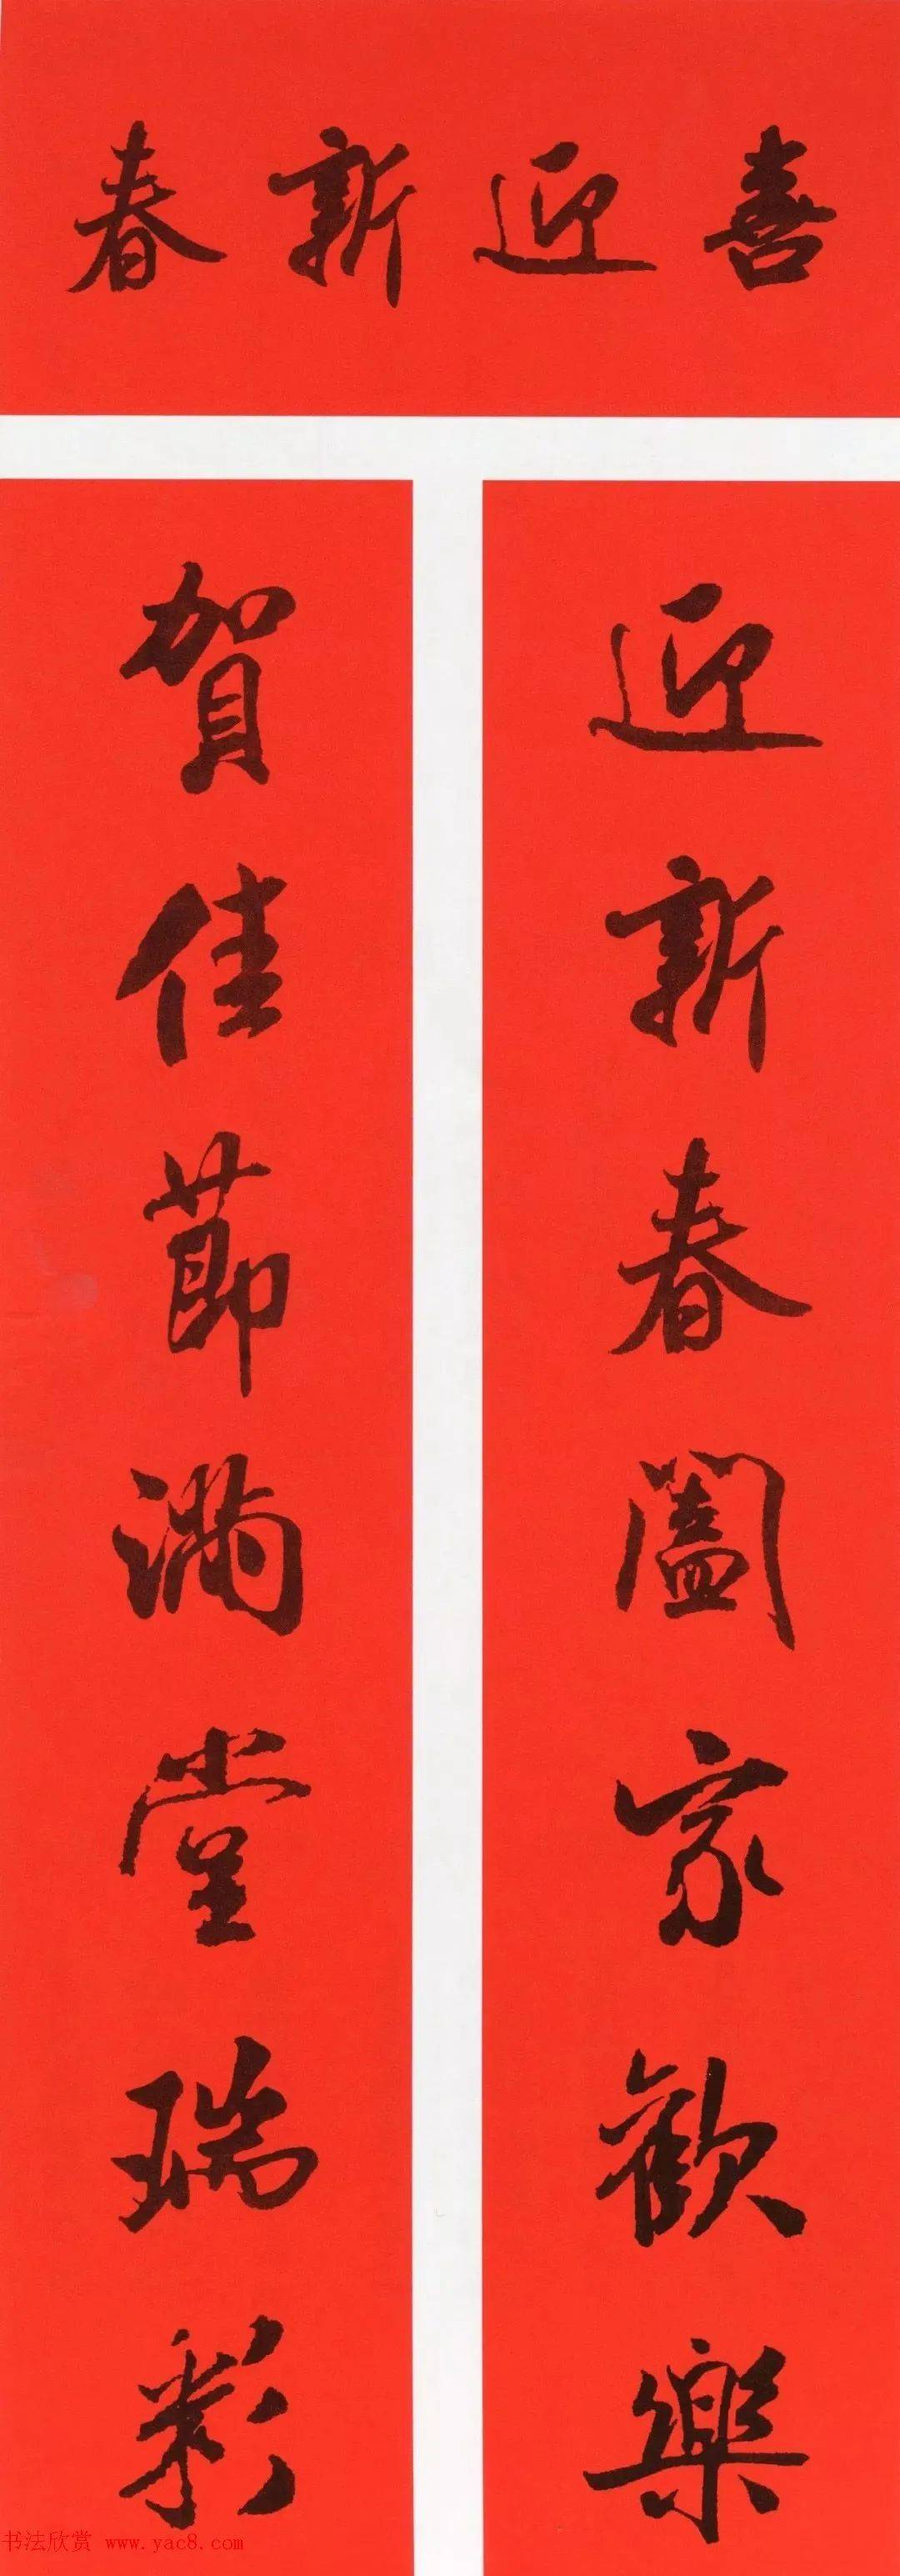 喜迎新春
迎新春闔家歡樂
賀佳節滿堂瑞彩
书法欣赏 www.yac8.com